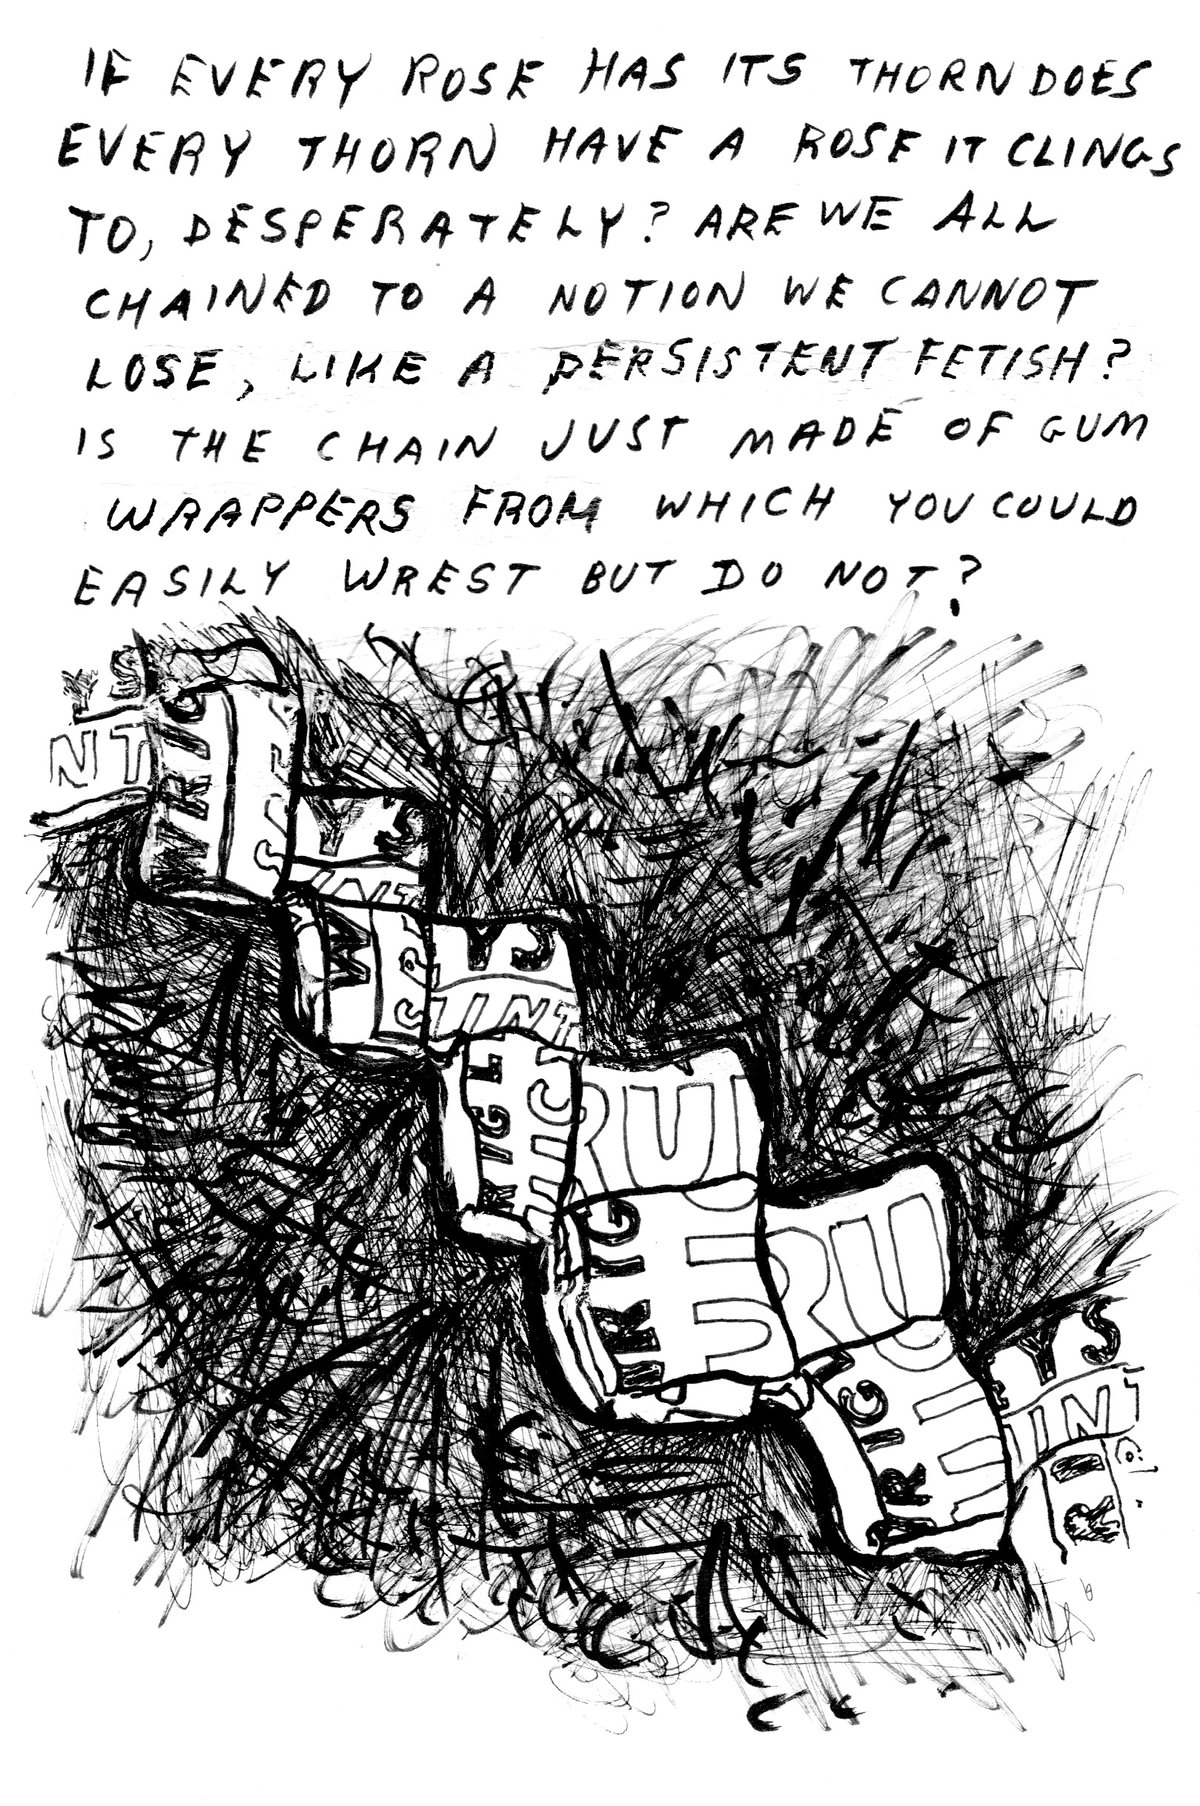 IF EVERY ROSE HAS ITS THORN DOES
EVERY THORN HAVE A ROSE IT CLINGS
TO, DESPERATELY? ARE WE ALL
CHAINED TO A NOTION WE CANNOT
LOSE, LIKE A PERSISTENT FETISH?
IS THE CHAIN JUST MADE OF GUM
WRAPPERS FROM WHICH YOU COULD
EASILY WREST BUT DO NOT?
YS
NT
WRIG
YS
INT
W
YS
INT
WRIGL
RUI
WRIG
RU
WRIG
YS
INT